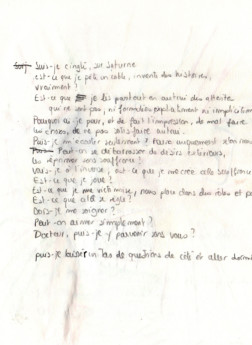 Suis-je cinglé, sur Saturne
est-ce que je pète un cable, invente des histoires,
vraiment ?
Est-ce que je lis partout en autrui des attentes
qui ne sont pas, ni formulées explicitement ni implicitement
Pourquoi ai-je peur, et de fait l'impression, de mal faire
de ne pas satisfaire autrui.
Puis-je m'écouter seulement ? suivre uniquement
Peut-on se débarrasser de désirs
les réprimer sans souffrance ?
Vais-je à l'inverse, est-ce que je me crée cette souffrance
Est-ce que je joue ?
Est-ce que je me victimise, nous place dans des rôles et
Est-ce que cela se règle ?
Dois-je me soigner ?
Peut-on aimer simplement ?
Docteur, puis-je y parvenir sans vous ?
puis-je laisser un tas de questions de côté et aller dormir